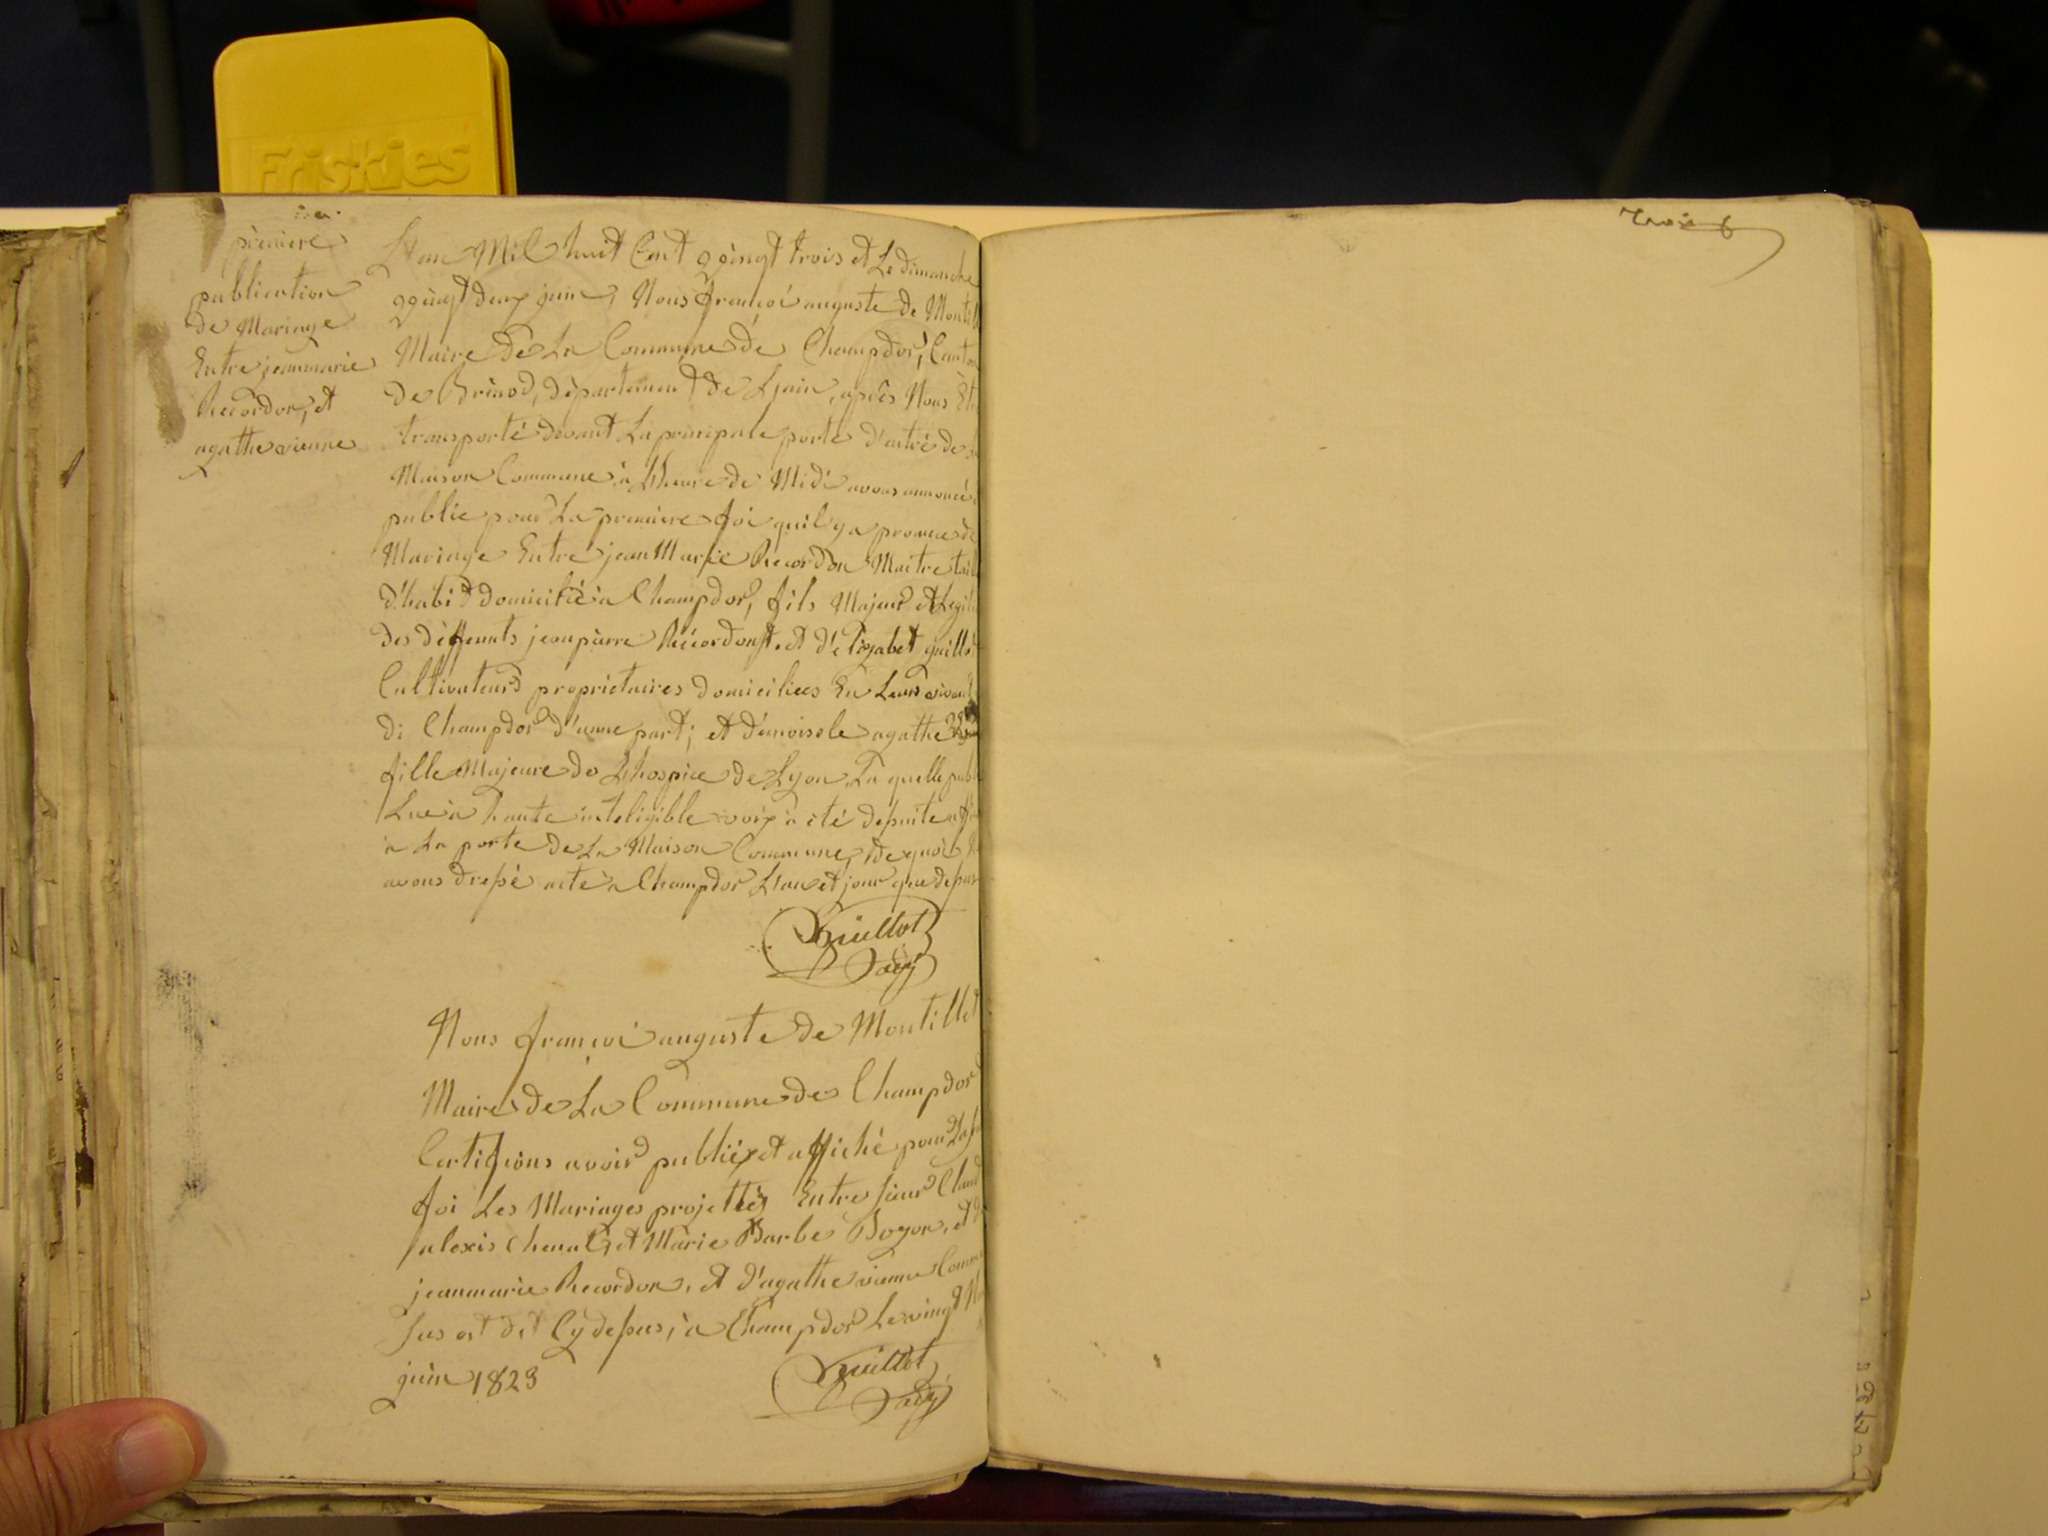 Friskies
premiere
publication
de Mariage
Entre jeanmarie
Recordon, et
agathe vienne
L'an Mil huit Cent vingt trois et Le dimanche
vingt deux juin, Nous françoi auguste de
Maire de La Commune de Champdor, Canton
de Brénod, département de L'ain, après Nous
transporté devant La principale porte d'entré de
Maison Commune à L'heure de Midi avons annoncé
publie pour La premiere foi quil y a promese de
Mariage Entre jean Marie Recordon Maitre
d'habit domicilié à Champdor, fils Majeur et
des deffunts jeanpierre Récordon et d'élizabet
Cultivateurs proprietaires domiciliees En Leurs
di Champdor d'une part; et demoisele agathe
fille Majeure de L'hospice de Lyon, La quelle
Lue à haute inteligible voix à été depuite
à La porte de La Maison Commune, de quoi
avons dressé acte à Champdor L'an et jour que
Guillot
adj
Nous françoi auguste de Montillet
Maire de La Commune de Champdor
Certifions avoir publié et affiché pour La
foi Les Mariages projettés Entre sieur
alexis Chenal, et Marie Barbe Boyon, et
jeanmarie Recordon, et d'agathe vienne Comme
sus est dit Cy dessus, à Champdor Le vingt
juin 1823
Guillot
adj
Trois